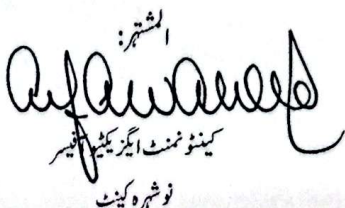 المشتہر:
کینٹونمنٹ ایگزیکٹیو آفیسر
نوشہرہ کینٹ